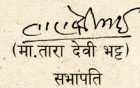 (मा.तारा देवी भट्ट)
सभापति